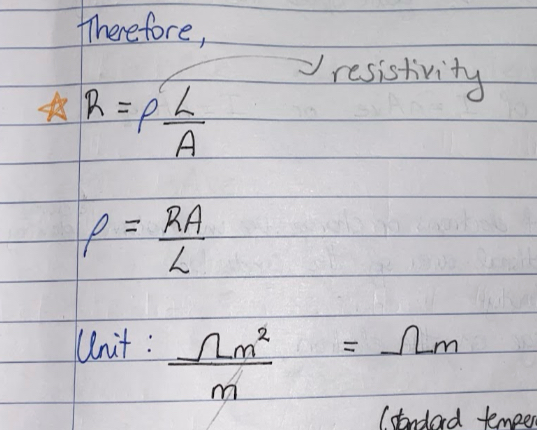 Therefore,
resistivity
☆ R = ρ L/A
ρ = RA/L
Unit : Ωm²/m = Ωm
(standard